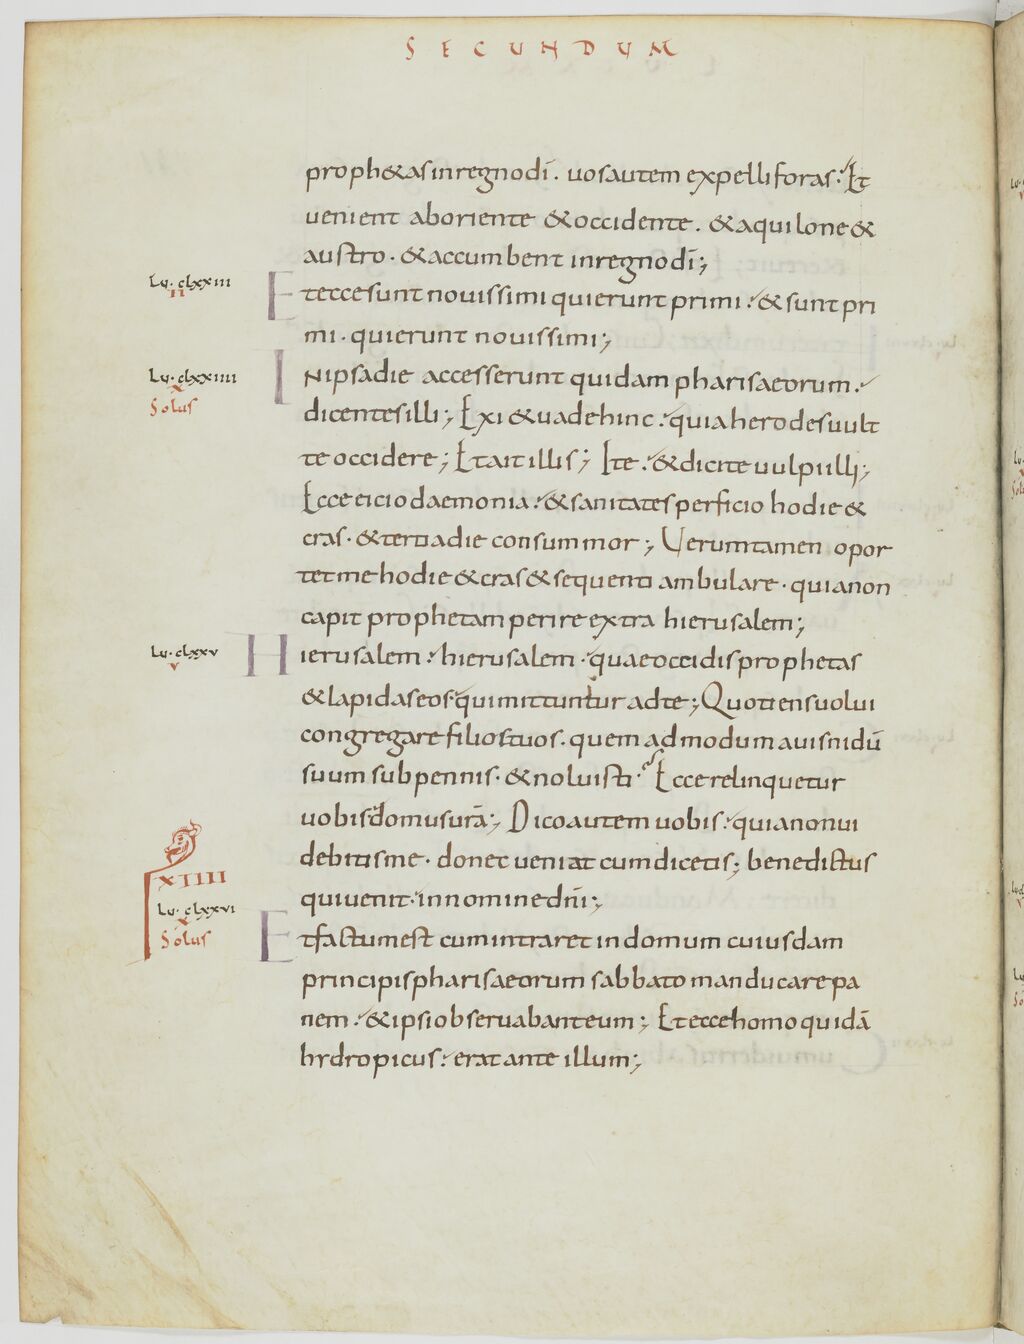 SECUNDUM
proph&as inregnodī. uosautem expelliforas. Et
uenient aboriente &occidente. &aquilone&
austro. &accumbent inregnodī;
Lu. clxxiii
ii
Eteccesunt nouissimi quierunt primi. &sunt pri
mi. quierunt nouissimi;
Lu. clxxiiii
x
Solus
INipsadie accesserunt quidam pharisaeorum.
dicentesilli; Exi &uadehinc. quiaherodesuult
te occidere; Etait illis; Ite. &dicite uulpi illi;
Ecce eicio daemonia. &sanitates perficio hodie &
cras. &tertiadie consummor; Uerumtamen opor
tet me hodie &cras &sequenti ambulare. quianon
capit prophetam perire extra hierusalem;
Lu. clxxv
v
Hierusalem. hierusalem. quaeoccidis prophetas
&lapidaseos. quimittuntur adte; Quotiensuolui
congregare filiostuos. quem admodum auisnidū
suum subpennis. &noluisti. Ecce relinquetur
uobisdomusurā; Dicoautem uobis. quianonui
debitisme. donec ueniat cumdicetis; benedictus
quiuenit. innominednī;
XIIII
Lu. clxxvi
x
Solus
Etfactumest cumintraret indomum cuiusdam
principispharisaeorum sabbato manducarepa
nem. &ipsiobseruabanteum; Eteccehomoquidā
hydropicus. erat ante illum;